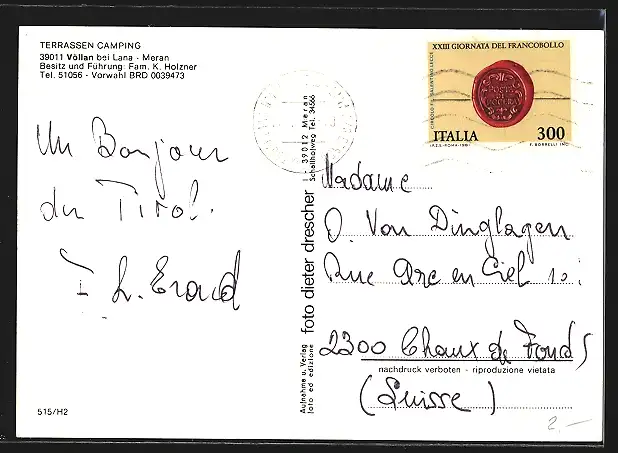 TERRASSEN CAMPING
39011 Völlan bei Lana - Meran
Besitz und Führung: Fam. K. Holzner
Tel. 51056 - Vorwahl BRD 0039473
Un Bonjour
du Tirol.
515/H2
Aufnahme u. Verlag
foto ed edizione
foto dieter drescher
39012 Meran
Schallhofweg Tel. 34566
XXIII GIORNATA DEL FRANCOBOLLO
ITALIA 300
I.P.Z.S.-ROMA-1981 F. BORRELLI INC.
Madame
O. Von Dinglagen
Rue Arc en Ciel 10
2300 Chaux de Fonds
nachdruck verboten - riproduzione vietata
(Suisse)
2.-